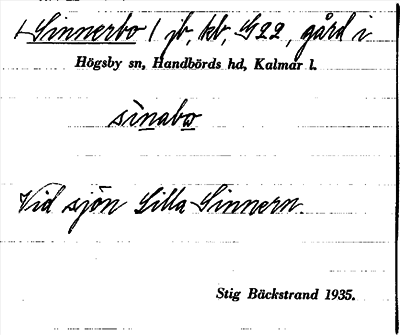 Sinnerbo / jb, kb, G22, gård i
Högsby sn, Handbörds hd, Kalmar l.
sìnabω
Vid sjön Lilla Sinnern.
Stig Bäckstrand 1935.